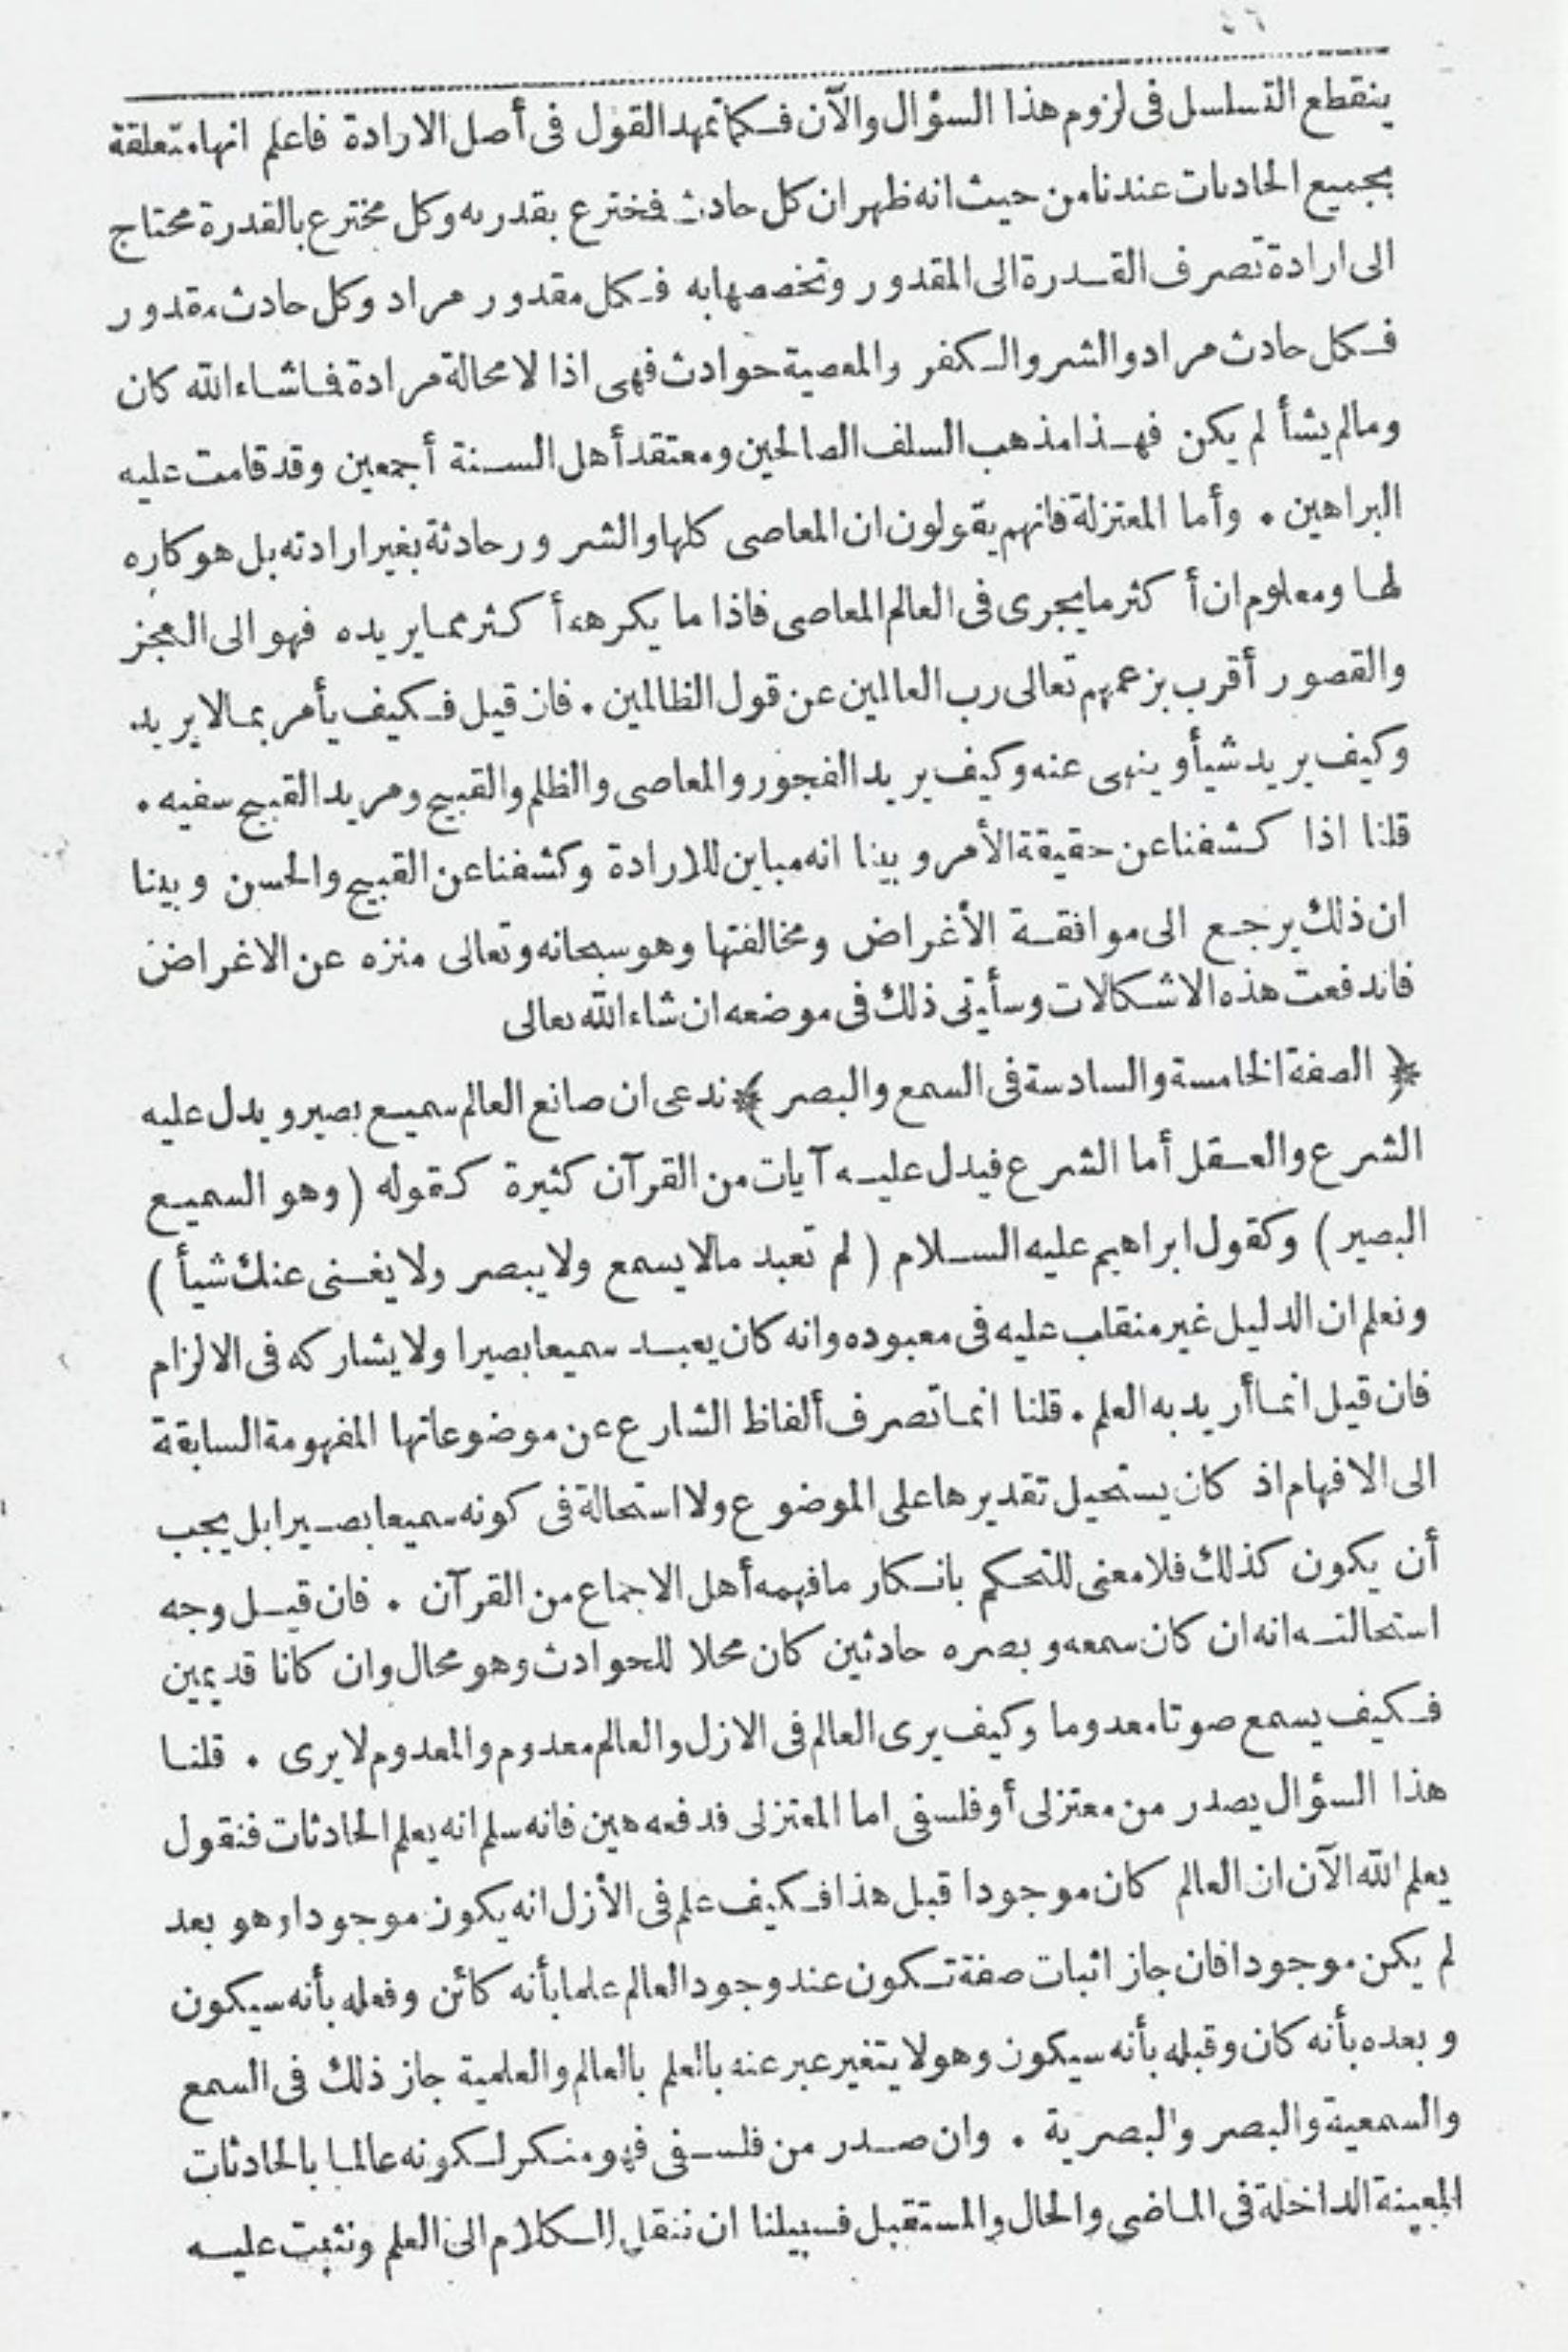 ينقطع التسلسل فى لزوم هذا السؤال والآن فكما تمهد القول فى أصل الارادة فاعلم انها متعلقة
بجميع الحادثات عندنا من حيث انه ظهر ان كل حادث فمخترع بقدرته وكل مخترع بالقدرة محتاج
الى ارادة تصرف القدرة الى المقدور وتخصصها به فكل مقدور مراد وكل حادث مقدور
فكل حادث مراد والشر والكفر والمعصية حوادث فهى اذا لا محالة مرادة فما شاء الله كان
وما لم يشأ لم يكن فهذا مذهب السلف الصالحين ومعتقد أهل السنة أجمعين وقد قامت عليه
البراهين . وأما المعتزلة فانهم يقولون ان المعاصى كلها والشرور حادثة بغير ارادته بل هو كاره
لها ومعلوم ان أكثر ما يجرى فى العالم المعاصى فاذا ما يكرهه أكثر مما يريده فهو الى العجز
والقصور أقرب بزعمهم تعالى رب العالمين عن قول الظالمين . فان قيل فكيف يأمر بما لا يريد
وكيف يريد شيأ وينهى عنه وكيف يريد الفجور والمعاصى والظلم والقبيح ومريد القبيح سفيه .
قلنا اذا كشفنا عن حقيقة الأمر وبينا انه مباين للارادة وكشفنا عن القبيح والحسن وبينا
ان ذلك يرجع الى موافقة الأغراض ومخالفتها وهو سبحانه وتعالى منزه عن الاغراض
فاندفعت هذه الاشكالات وسأيتى ذلك فى موضعه ان شاء الله تعالى
﴿ الصفة الخامسة والسادسة فى السمع والبصر ﴾ ندعى ان صانع العالم سميع بصير ويدل عليه
الشرع والعقل أما الشرع فيدل عليه آيات من القرآن كثيرة كقوله ( وهو السميع
البصير ) وكقول ابراهيم عليه السلام ( لم تعبد مالا يسمع ولا يبصر ولا يغنى عنك شيأ )
ونعلم ان الدليل غير منقلب عليه فى معبوده وانه كان يعبد سميعا بصيرا ولا يشاركه فى الالزام
فان قيل انما أريد به العلم . قلنا انما تصرف ألفاظ الشارع عن موضوعاتها المفهومة السابقة
الى الافهام اذ كان يستحيل تقديرها على الموضوع ولا استحالة فى كونه سميعا بصيرا بل يجب
أن يكون كذلك فلا معنى للتحكم بانكار ما فهمه أهل الاجماع من القرآن . فان قيل وجه
استحالته انه ان كان سمعه وبصره حادثين كان محلا للحوادث وهو محال وان كانا قديمين
فكيف يسمع صوتا معدوما وكيف يرى العالم فى الازل والعالم معدوم والمعدوم لا يرى . قلنا
هذا السؤال يصدر من معتزلى أو فلسفى اما المعتزلى فدفعه هين فانه سلم انه يعلم الحادثات فنقول
يعلم الله الآن ان العالم كان موجودا قبل هذا فكيف علم فى الأزل انه يكون موجودا وهو بعد
لم يكن موجودا فان جاز اثبات صفة تكون عند وجود العالم علما بأنه كائن وفعله بأنه سيكون
وبعده بأنه كان وقبله بأنه سيكون وهو لا يتغير عبر عنه بالعلم بالعالم والعلمية جاز ذلك فى السمع
والسمعية والبصر والبصرية . وان صدر من فلسفى فهو منكر لكونه عالما بالحادثات
المعينة الداخلة فى الماضى والحال والمستقبل فسبيلنا ان ننقل الكلام الى العلم ونثبت عليه